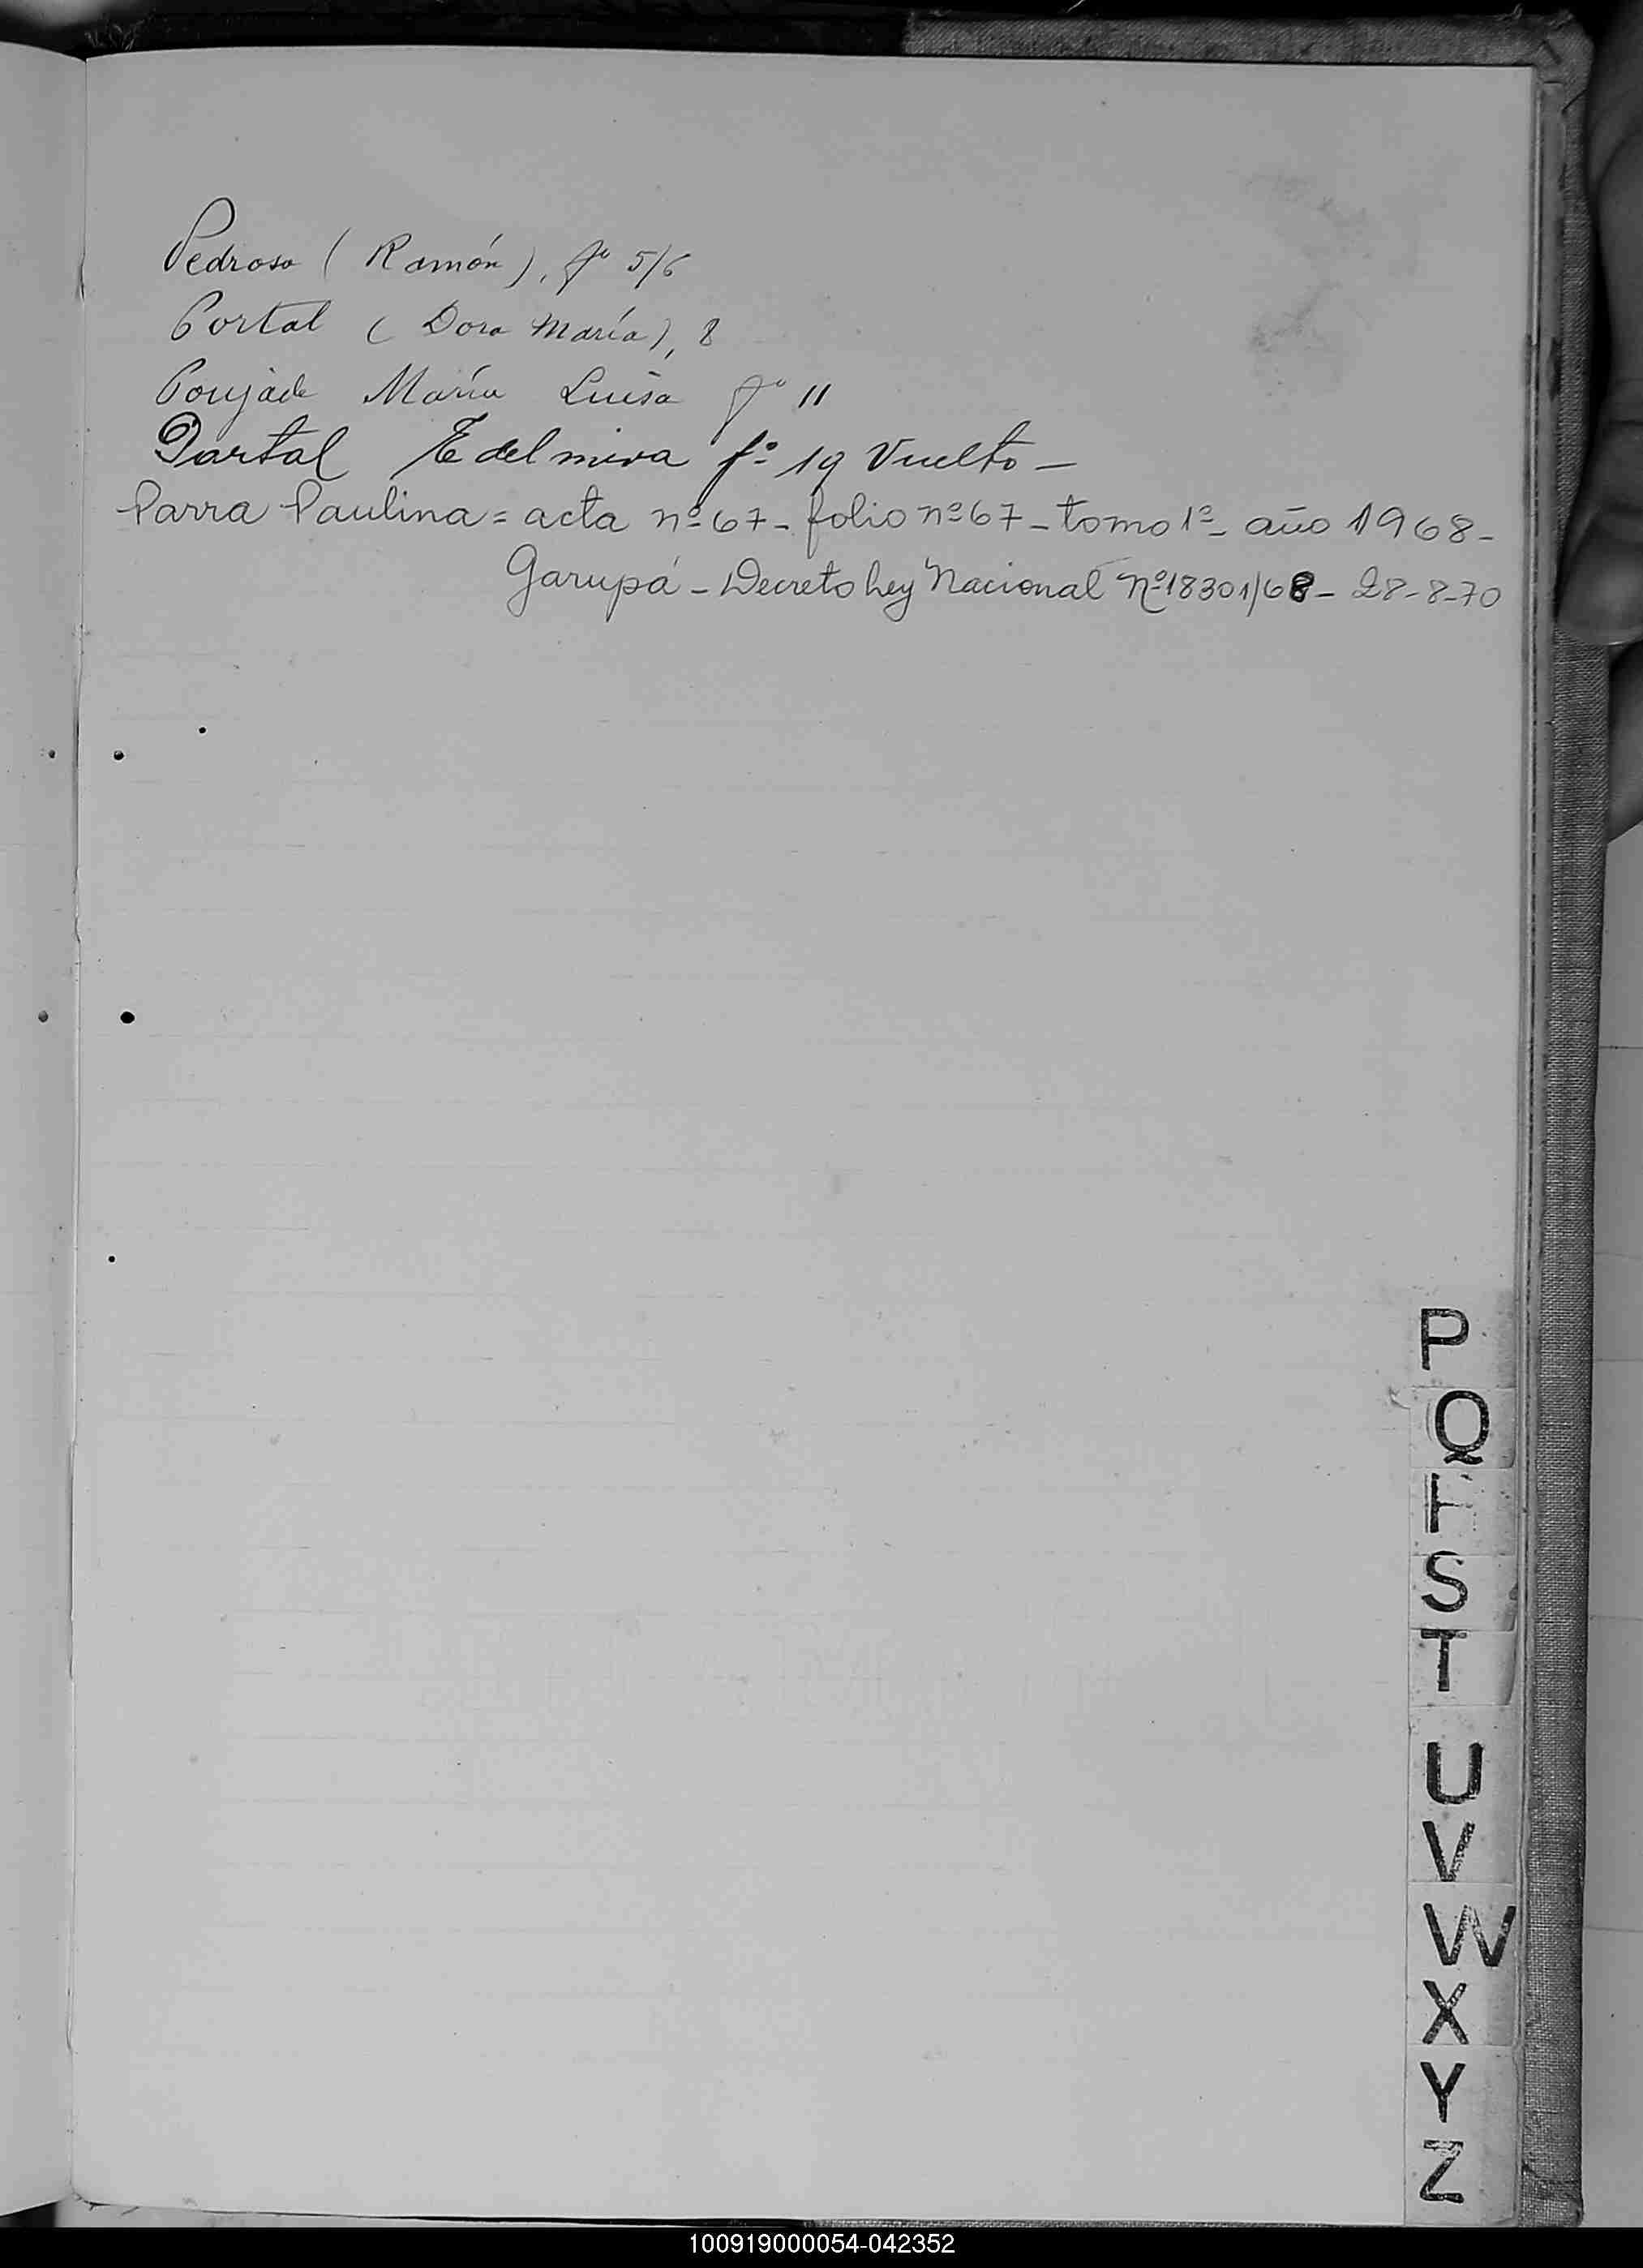 Pedroso (Ramón), fº 5/6
Portal (Dora María), 8
Poujade María Luisa fº 11
Portal Edelmira fº 19 Vuelto -
Parra Paulina = acta nº 67 - folio nº 67 - tomo 1º - año 1968 -
Garupá - Decreto Ley Nacional Nº 18301/68 - 28-8-70
P
Q
R
S
T
U
V
W
X
Y
Z
100919000054-042352